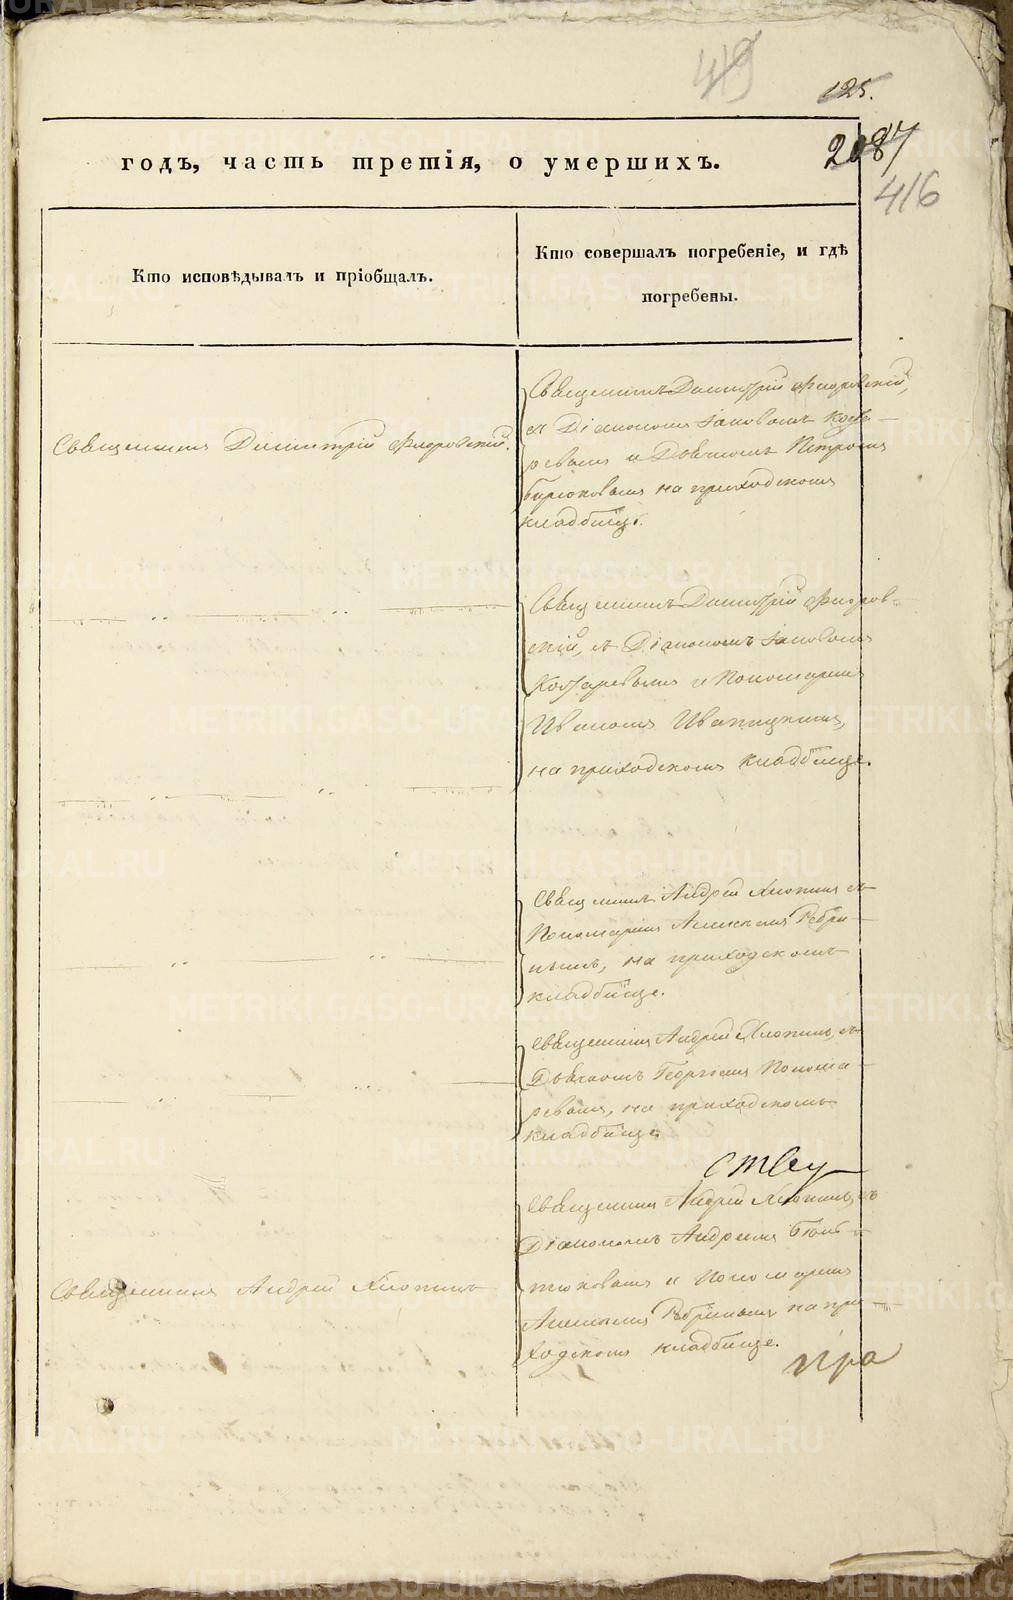 419
125.
годъ, часть третія, о умершихъ.
2087
416
Кто исповѣдывалъ и пріобщалъ.
Кто совершалъ погребеніе, и гдѣ
погребены.
Священникъ Димитрій Флоровскій.
Священникъ Димитрій Флоровскій,
съ Діакономъ Іаковомъ
и Дьячкомъ Петромъ
Бирюковымъ на приходскомъ
кладбищѣ.
Священникъ Димитрій Флоров-
скій, съ Діакономъ Іаковомъ
и Пономаремъ
Иваномъ Иваницкимъ,
на приходскомъ кладбищѣ.
Священникъ Андрей Хлопинъ съ
Пономаремъ Алексѣемъ Ребри-
нымъ, на приходскомъ
кладбищѣ.
Священникъ Андрей Хлопинъ, съ
Дьячкомъ Георгіемъ Понома-
ревымъ, на приходскомъ
кладбищѣ
ству
Священникъ Андрей Хлопинъ
Священникъ Андрей Хлопинъ, съ
Діакономъ Андреемъ
и Пономаремъ
Алексѣемъ Ребринымъ на при-
ходскомъ кладбищѣ.
пра
METRIKI.GASO-URAL.RU